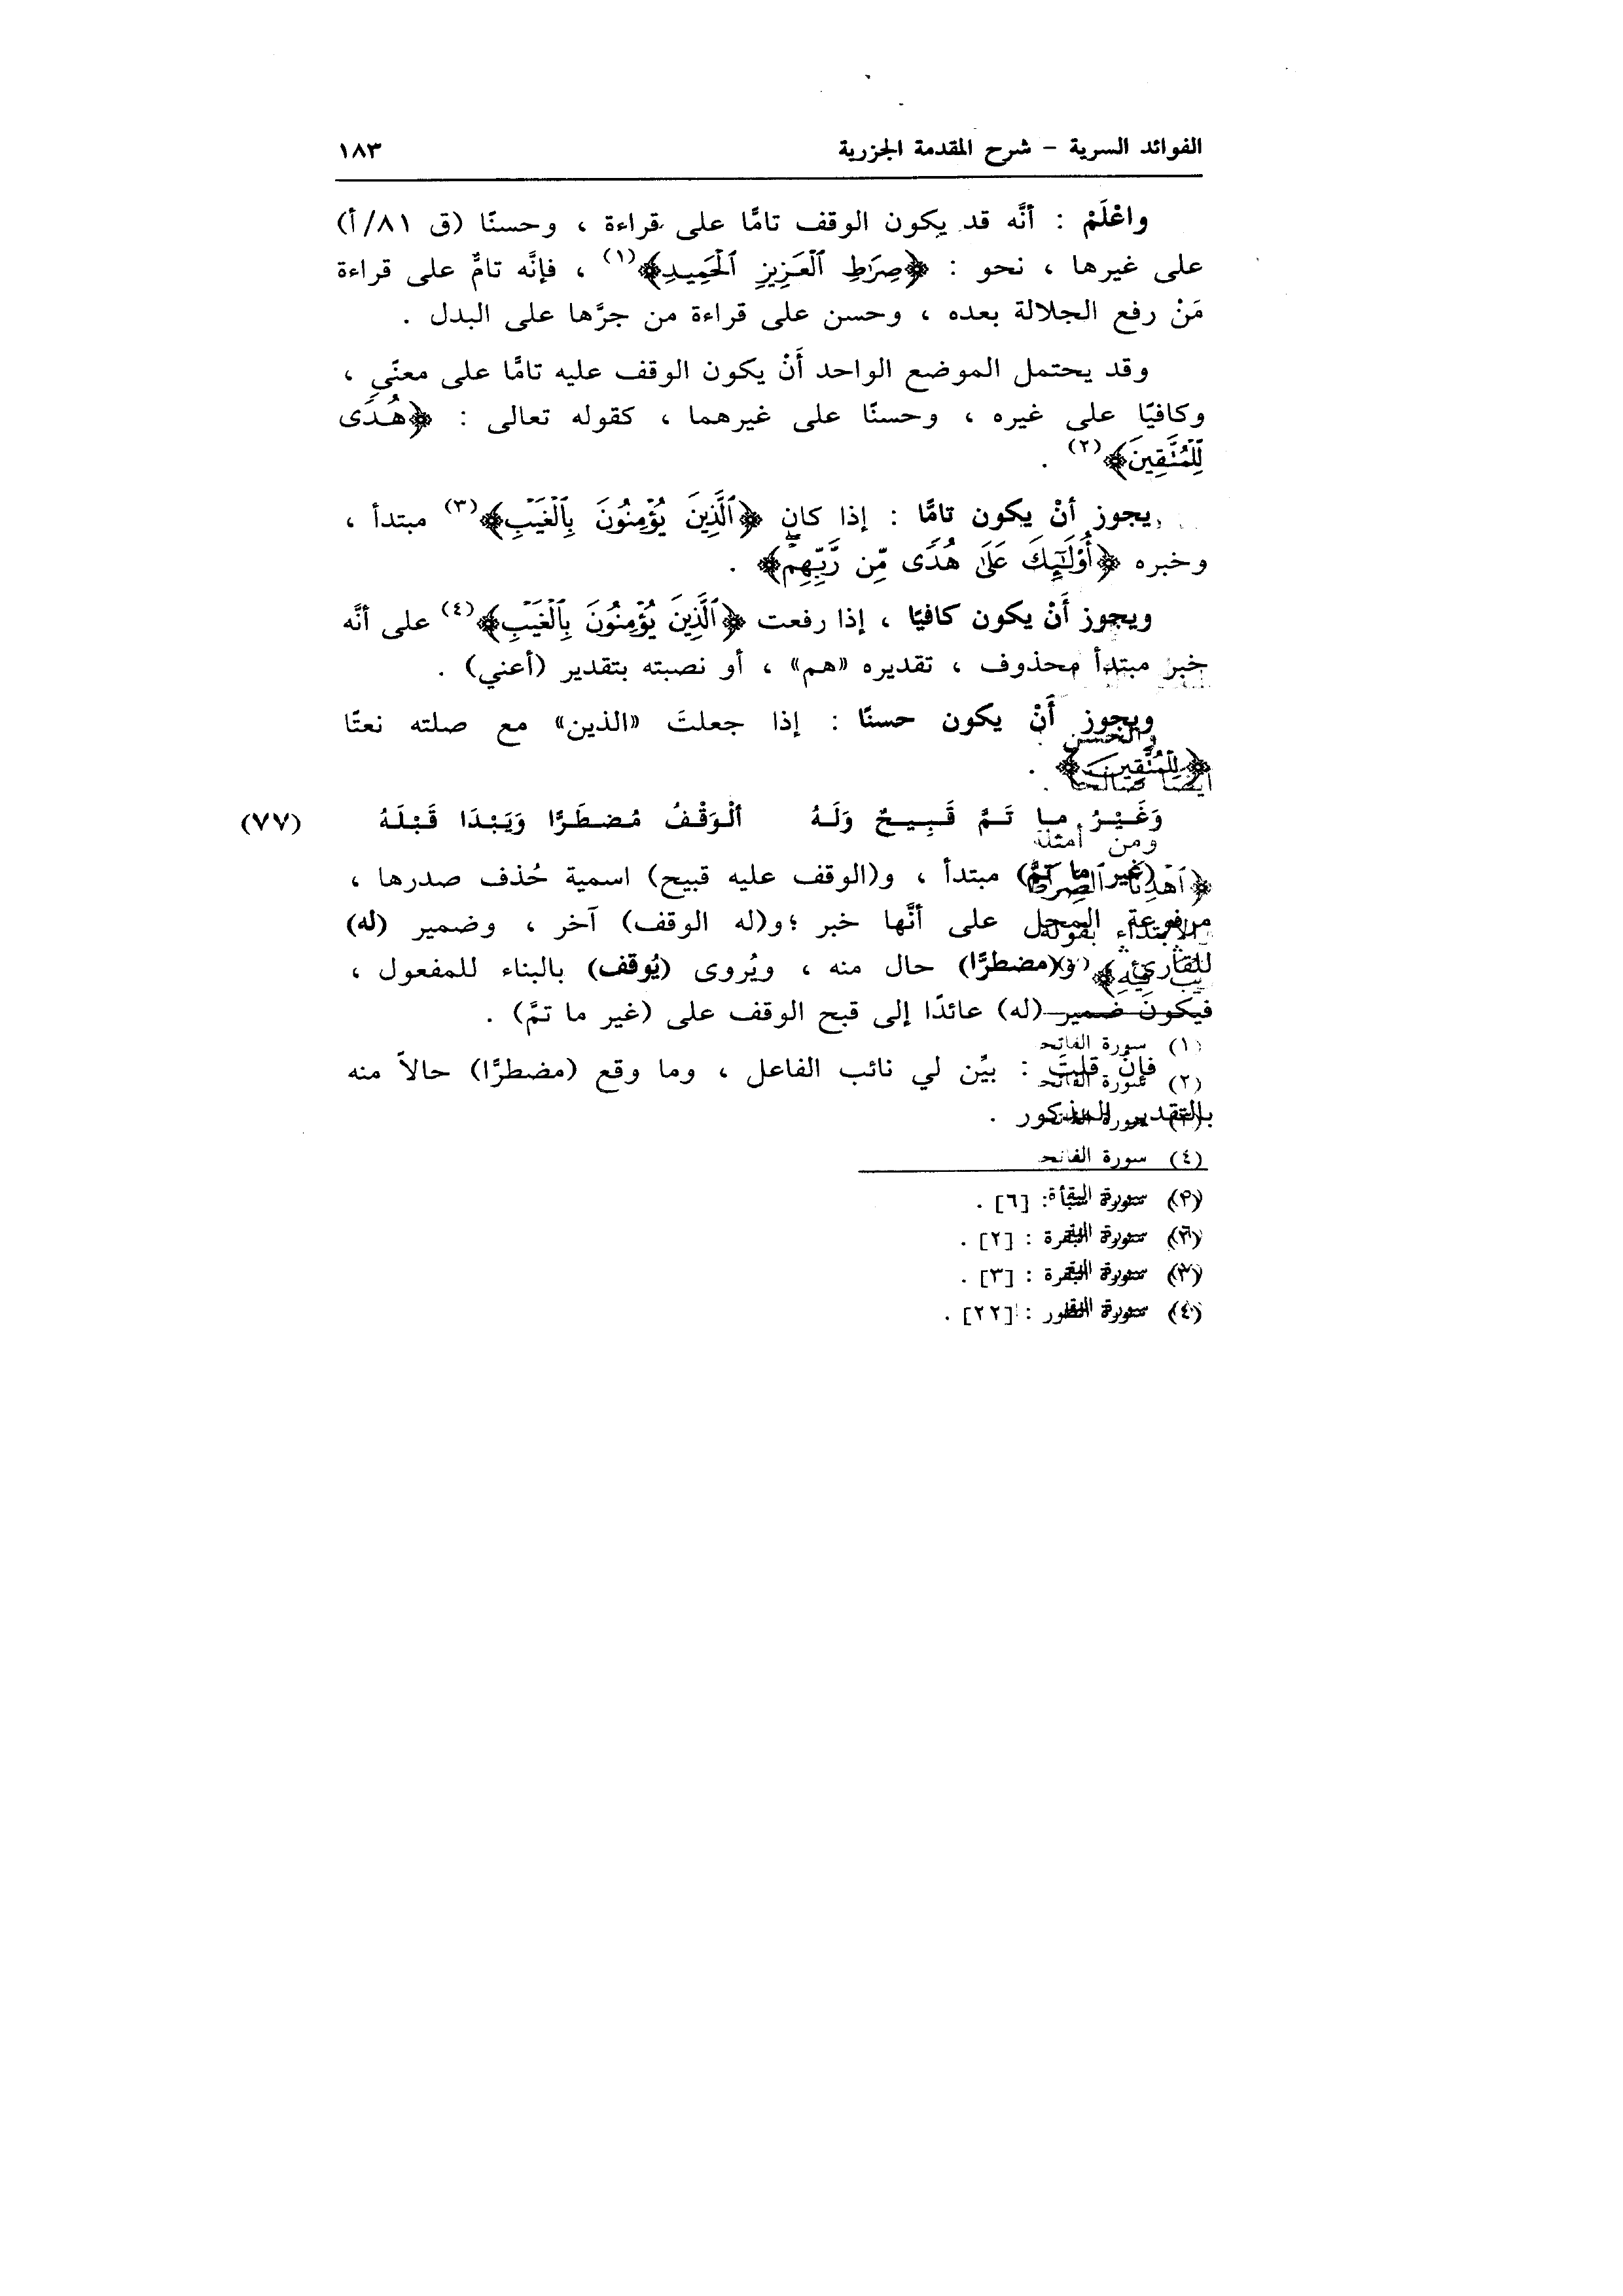 الفوائد السرية – شرح المقدمة الجزرية ١٨٣
واعْلَمْ : أنَّه قد يكون الوقف تامًّا على قراءة ، وحسنًا (ق ٨١/أ)
على غيرها ، نحو : ﴿صِرَٰطِ ٱلْعَزِيزِ ٱلْحَمِيدِ﴾(١) ، فإنَّه تامٌّ على قراءة
مَنْ رفع الجلالة بعده ، وحسن على قراءة من جرَّها على البدل .
وقد يحتمل الموضع الواحد أَنْ يكون الوقف عليه تامًّا على معنًى ،
وكافيًا على غيره ، وحسنًا على غيرهما ، كقوله تعالى : ﴿هُدًى
لِّلْمُتَّقِينَ﴾(٢) .
يجوز أنْ يكون تامًّا : إذا كان ﴿ٱلَّذِينَ يُؤْمِنُونَ بِٱلْغَيْبِ﴾(٣) مبتدأ ،
وخبره ﴿أُوْلَٰٓئِكَ عَلَىٰ هُدًى مِّن رَّبِّهِمْ﴾ .
ويجوز أَنْ يكون كافيًا ، إذا رفعت ﴿ٱلَّذِينَ يُؤْمِنُونَ بِٱلْغَيْبِ﴾(٤) على أنَّه
خبر مبتدأ محذوف ، تقديره «هم» ، أو نصبته بتقدير (أعني) .
ويجوز أَنْ يكون حسنًا : إذا جعلتَ «الذين» مع صلته نعتًا
والحسن
﴿لِّلْمُتَّقِينَ﴾ .
أيضًا صالحًا .
وَغَـيْـرُ مـا تَـمَّ قَـبِـيـحٌ وَلَـهُ ألْـوَقْـفُ مُـضـطَـرًّا وَيَـبْـدَا قَـبْـلَـهُ (٧٧)
ومن أمثلة
(غير ما تمَّ) مبتدأ ، و(الوقف عليه قبيح) اسمية حُذف صدرها ،
﴿ٱهْدِنَا ٱلصِّرَٰطَ
مرفوعة المحل على أنَّها خبر ؛و(له الوقف) آخر ، وضمير (له)
الابتداء بقوله
للقارئ و(مضطرًّا) حال منه ، ويُروى (يُوقف) بالبناء للمفعول ،
فيكون ضمير (له) عائدًا إلى قبح الوقف على (غير ما تمَّ) .
(١) سورة الفاتح
فإنْ قلتَ : بيِّن لي نائب الفاعل ، وما وقع (مضطرًّا) حالاً منه
(٢) سورة الفاتح
بالتقدير المذكور .
(٤) سورة الفاتح
سورة : [٦] .
سورة البقرة : [٢] .
(٣) سورة البقرة : [٣] .
(٤) سورة : [٢٢] .